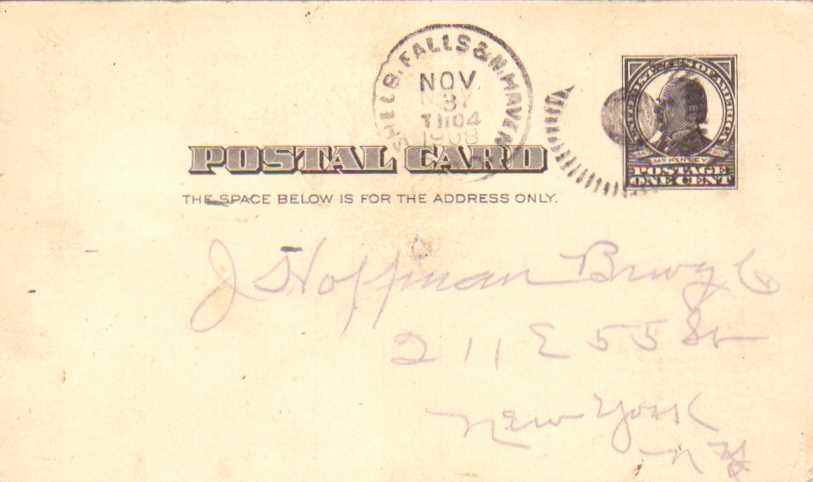 SHEL B. FALLS & N. HAVEN
NOV.
1908
UNITED STATES OF AMERICA
POSTAL CARD
POSTAGE
ONE CENT
THE SPACE BELOW IS FOR THE ADDRESS ONLY.
J Hoffman Brwg Co
211 E 55 St
New York
N Y